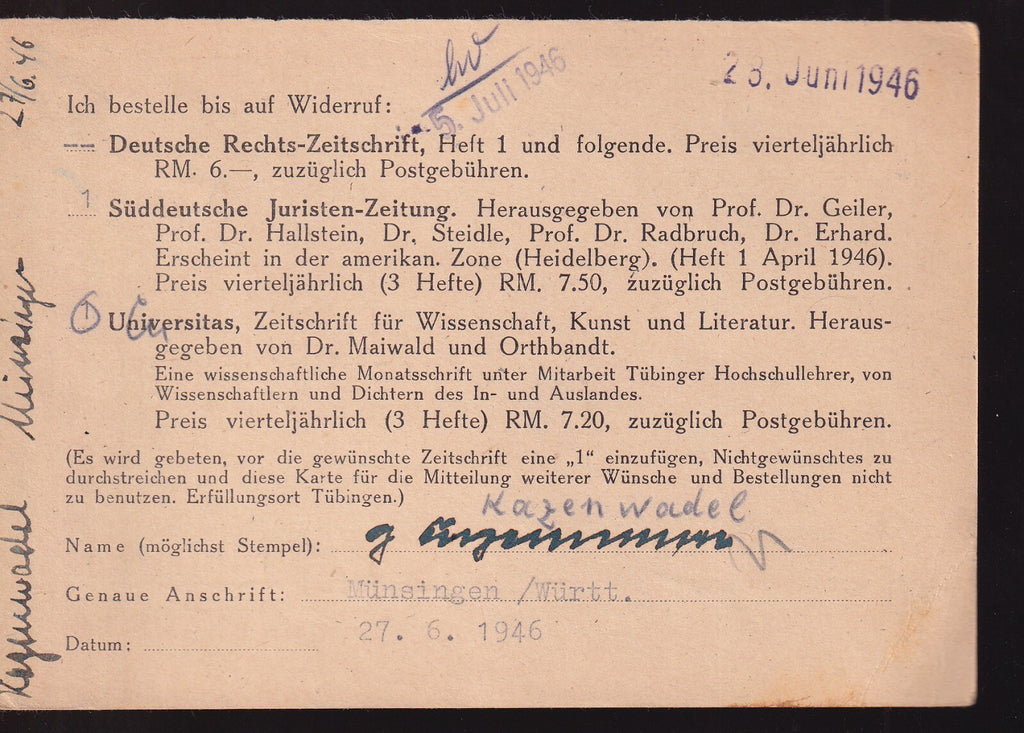 27/6.46
Kazenwadel Münsingen
hv
5. Juli 1946
28. Juni 1946
Ich bestelle bis auf Widerruf:
Deutsche Rechts-Zeitschrift, Heft 1 und folgende. Preis vierteljährlich
RM. 6.—, zuzüglich Postgebühren.
1 Süddeutsche Juristen-Zeitung. Herausgegeben von Prof. Dr. Geiler,
Prof. Dr. Hallstein, Dr. Steidle, Prof. Dr. Radbruch, Dr. Erhard.
Erscheint in der amerikan. Zone (Heidelberg). (Heft 1 April 1946).
Preis vierteljährlich (3 Hefte) RM. 7.50, zuzüglich Postgebühren.
1 Universitas, Zeitschrift für Wissenschaft, Kunst und Literatur. Heraus-
gegeben von Dr. Maiwald und Orthbandt.
Eine wissenschaftliche Monatsschrift unter Mitarbeit Tübinger Hochschullehrer, von
Wissenschaftlern und Dichtern des In- und Auslandes.
Preis vierteljährlich (3 Hefte) RM. 7.20, zuzüglich Postgebühren.
(Es wird gebeten, vor die gewünschte Zeitschrift eine „1" einzufügen, Nichtgewünschtes zu
durchstreichen und diese Karte für die Mitteilung weiterer Wünsche und Bestellungen nicht
zu benutzen. Erfüllungsort Tübingen.)
Kazenwadel
Name (möglichst Stempel):
Genaue Anschrift: Münsingen /Württ.
Datum: 27. 6. 1946